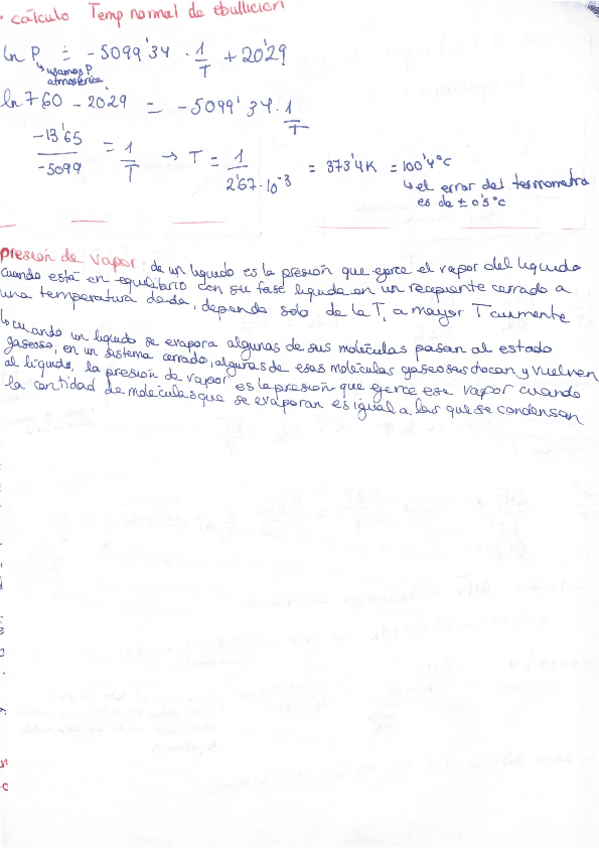 · cálculo Temp normal de ebullición
ln P = -5099'34 · 1/T + 20'29
↳ usamos P
atmosférica
ln 760 - 20'29 = -5099'34 · 1/T
-13'65/-5099 = 1/T → T = 1/2'67·10⁻³ = 373'4K = 100'4°C
↳ el error del termometro
es de ± 0'5°C
presión de vapor: de un liquido es la presión que ejerce el vapor del liquido
cuando está en equilibrio con su fase liquida en un recipiente cerrado a
una temperatura dada, depende solo de la T, a mayor T aumente
↳ cuando un liquido se evapora algunas de sus moléculas pasan al estado
gaseoso, en un sistema cerrado, algunas de esas moléculas gaseosas chocan y vuelven
al líquido, la presión de vapor es la presión que ejerce ese vapor cuando
la cantidad de moléculas que se evaporan es igual a las que se condensan